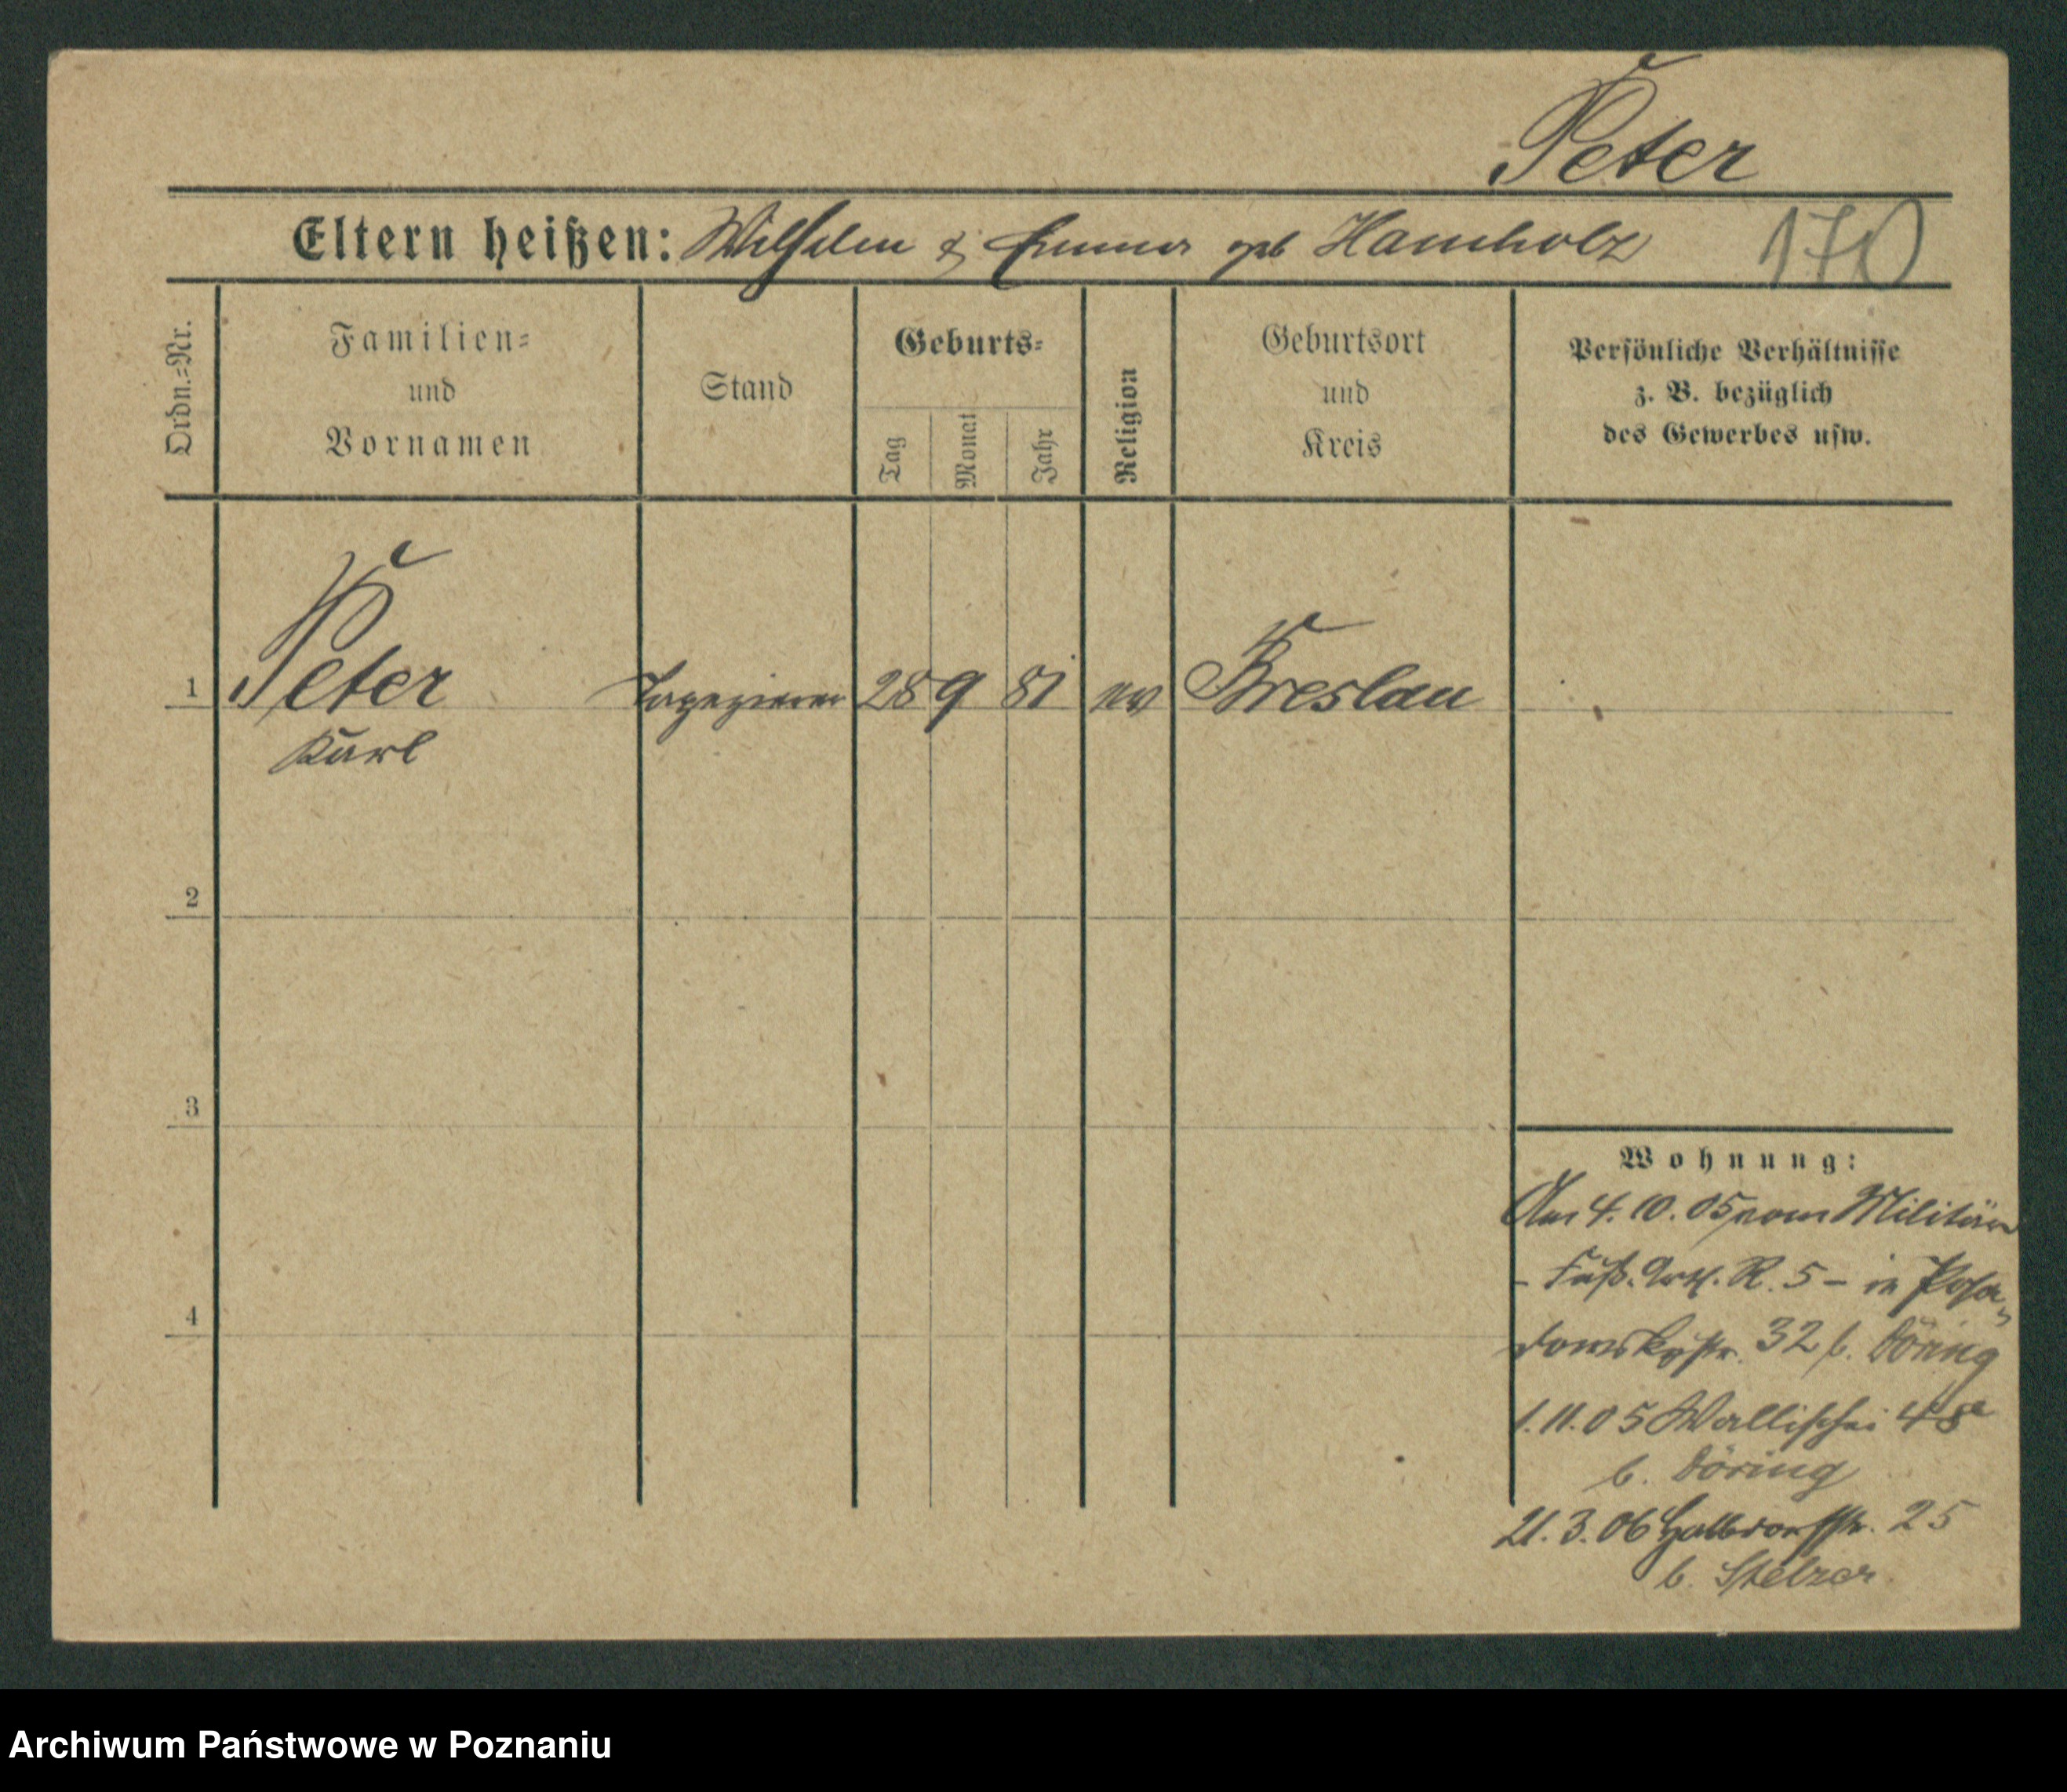 Peter
Eltern heißen: Wilhelm & Emma geb Hamholz 170
Ordn.=Nr.
Familien=
und
Vornamen
Stand
Geburts=
Tag
Monat
Jahr
Religion
Geburtsort
und
Kreis
Persönliche Verhältnisse
z. B. bezüglich
des Gewerbes usw.
1 Peter Tapezierer 28 9 81 ev Breslau
Karl
2
3
4
Wohnung:
Am 4. 10. 05 vom Militär
- Fuß. Art. R. 5 - in Posa-
dowskystr. 32 b. Döring
1. 11. 05 Wallischei 48a
b. Döring
21. 3. 06 Halbdorfstr. 25
b. Stelzer
Archiwum Państwowe w Poznaniu